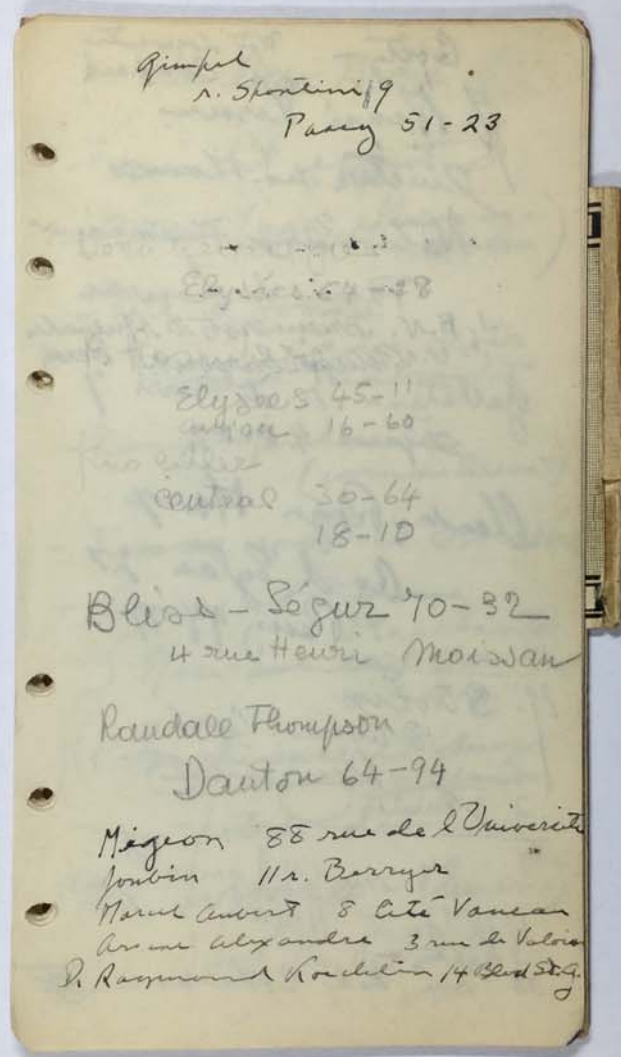 Gimpel
r. Spontini 19
Passy 51-23
Elysées 54-28
Elysées 45-11
16-60
Central 30-64
18-10
Bliss - Ségur 70-32
4 rue Henri Moissan
Randall Thompson
Danton 64-94
Migeon 88 rue de l'Université
Joubin 11 r. Berryer
Marcel Aubert 8 Cité Vaneau
Arsène Alexandre 3 rue de Valois
Raymond Koechlin 14 Blvd St. G.